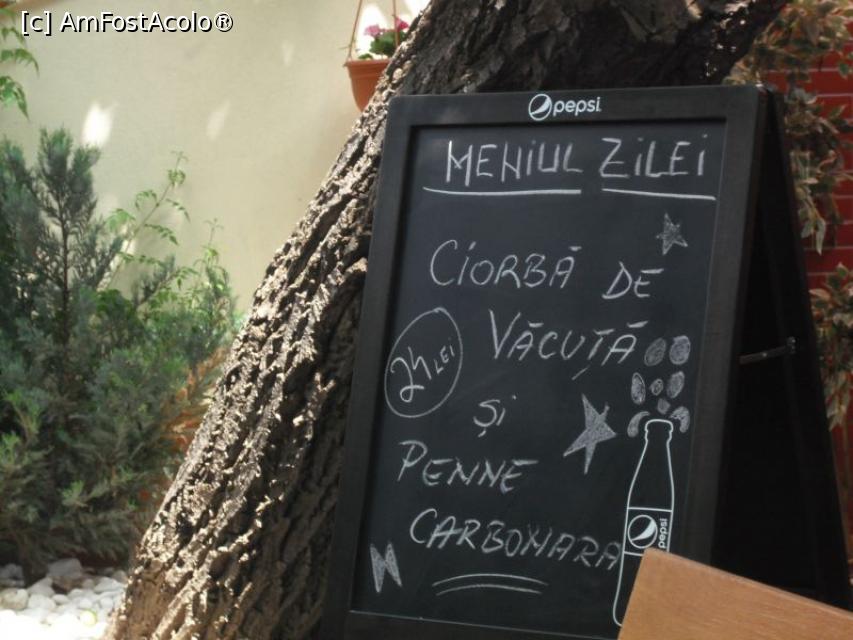 [c] AmFostAcolo®
pepsi
MENIUL ZILEI
CIORBĂ DE
VĂCUȚĂ
24 LEI
ȘI
PENNE
CARBONARA
pepsi